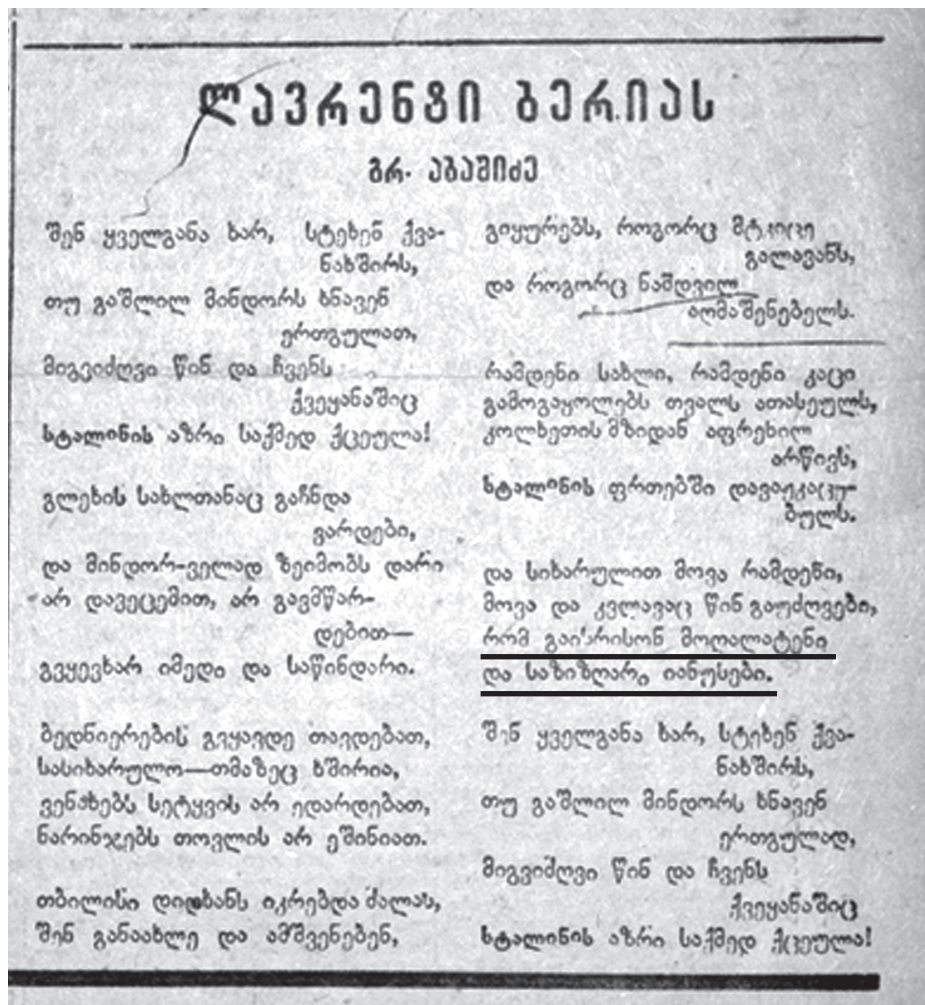 ლავრენტი ბერიას
გრ. აბაშიძე
შენ ყველგანა ხარ, სტეხენ ქვა-
ნახშირს,
თუ გაშლილ მინდორს ხნავენ
ერთგულათ,
მიგვიძღვი წინ და ჩვენს
ქვეყანაშიც
სტალინის აზრი საქმედ ქცეულა!
გლეხის სახლთანაც გაჩნდა
ვარდები,
და მინდორ-ველად ზეიმობს დარი
არ დავეცემით, არ გავმწარ-
დებით—
გვყევხარ იმედი და საწინდარი.
ბედნიერების გვყავდე თავდებათ,
სასიხარულო—თმაზეც ხშირია,
ვენახებს სეტყვის არ ედარდებათ,
ნარინჯებს თოვლის არ ეშინიათ.
თბილისი დიდხანს იკრებდა ძალას,
შენ განაახლე და ამშვენებენ,
გიყურებს, როგორც მტკიცე
გალავანს,
და როგორც ნამდვილ
აღმაშენებელს.
რამდენი სახლი, რამდენი კაცი
გამოგაყოლებს თვალს ათასეულს,
კოლხეთის მზიდან აფრენილ
არწივს,
სტალინის ფრთებში დავაჟკაცე-
ბულს.
და სიხარულით მოვა რამდენი,
მოვა და კვლავაც წინ გაუძღვები,
რომ გაისრისონ მოღალატენი
და საზიზღარი იანუსები.
შენ ყველგანა ხარ, სტეხენ ქვა-
ნახშირს,
თუ გაშლილ მინდორს ხნავენ
ერთგულად,
მიგვიძღვი წინ და ჩვენს
ქვეყანაშიც
სტალინის აზრი საქმედ ქცეულა!